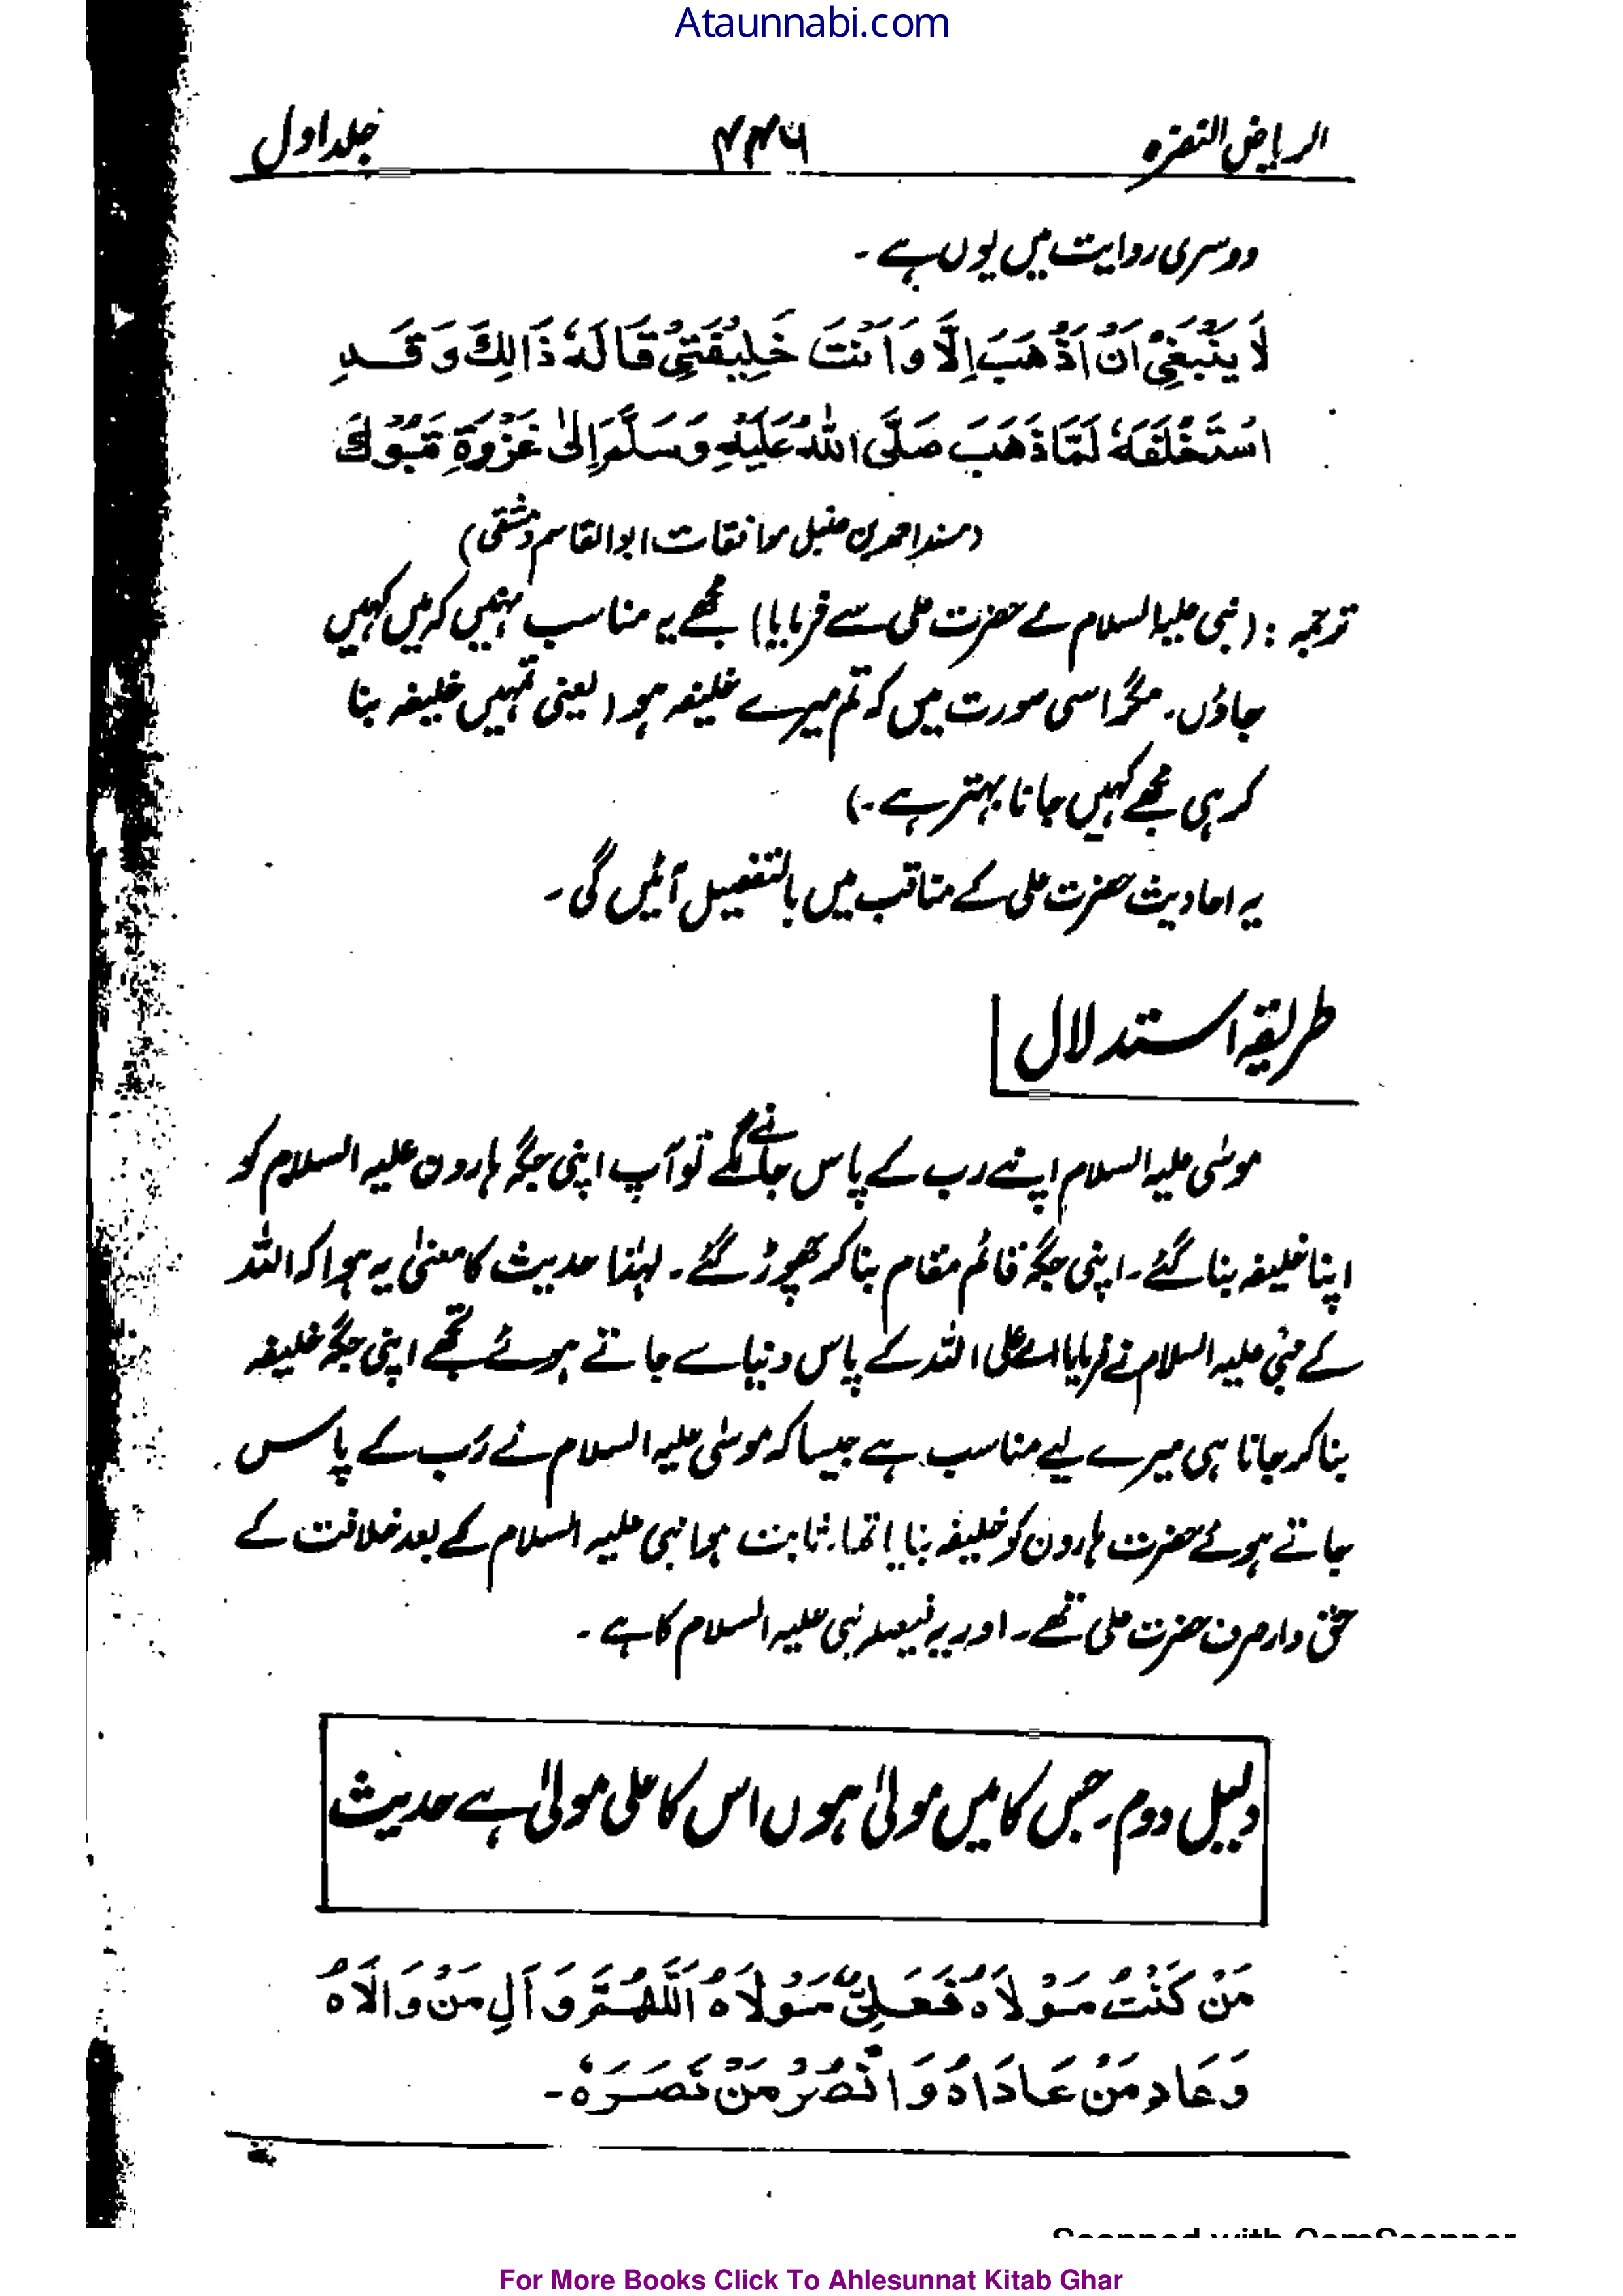 Ataunnabi.com
الریاض النضرہ ۴۳۶ جلد اول
دوسری روایت میں یوں ہے ۔
لَا یَنْۢبَغِیْ اَنْ اَذْھَبَ اِلَّا وَ اَنْتَ خَلِیْفَتِیْ قَالَہٗ ذَالِکَ وَ قَدِ
اسْتَخْلَفَہٗ لَمَّا ذَھَبَ صَلَّی اللّٰہُ عَلَیْہِ وَسَلَّمَ اِلٰی غَزْوَۃِ تَبُوْکَ
(مسند احمد بن حنبل موافقات ابوالقاسم دمشقی)
ترجمہ : (نبی علیہ السلام نے حضرت علی سے فرمایا) مجھے یہ مناسب نہیں کہ میں کہیں
جاؤں۔ مگر اسی صورت میں کہ تم میرے خلیفہ ہو (یعنی تمہیں خلیفہ بنا
کر ہی مجھے کہیں جانا بہتر ہے ۔)
یہ احادیث حضرت علی کے مناقب میں بالتفصیل آئیں گی ۔
طریقہ استدلال
موسٰی علیہ السلام اپنے رب کے پاس جانے لگے تو آپ اپنی جگہ ہارون علیہ السلام کو
اپنا خلیفہ بنا گئے ۔ اپنی جگہ قائم مقام بنا کر چھوڑ گئے ۔ لہٰذا حدیث کا معنیٰ یہ ہوا کہ اللہ
کے نبی علیہ السلام نے فرمایا اے علی اللہ کے پاس دنیا سے جاتے ہوئے تجھے اپنی جگہ خلیفہ
بنا کر جانا ہی میرے لیے مناسب ہے جیسا کہ موسٰی علیہ السلام نے رب کے پاس
جاتے ہوئے حضرت ہارون کو خلیفہ بنایا تھا۔ ثابت ہوا نبی علیہ السلام کے بعد خلافت کے
حق دار صرف حضرت علی تھے ۔ اور یہ فیصلہ نبی علیہ السلام کا ہے ۔
دلیل دوم ۔ جس کا میں مولیٰ ہوں اس کا علی مولیٰ ہے حدیث
مَنْ کُنْتُ مَوْلَاہُ فَعَلِیٌّ مَوْلَاہُ اَللّٰھُمَّ وَ آلِ مَنْ وَالَاہُ
وَ عَادِ مَنْ عَادَاہُ وَ انْصُرْ مَنْ نَصَرَہٗ ۔
Scanned with CamScanner
For More Books Click To Ahlesunnat Kitab Ghar